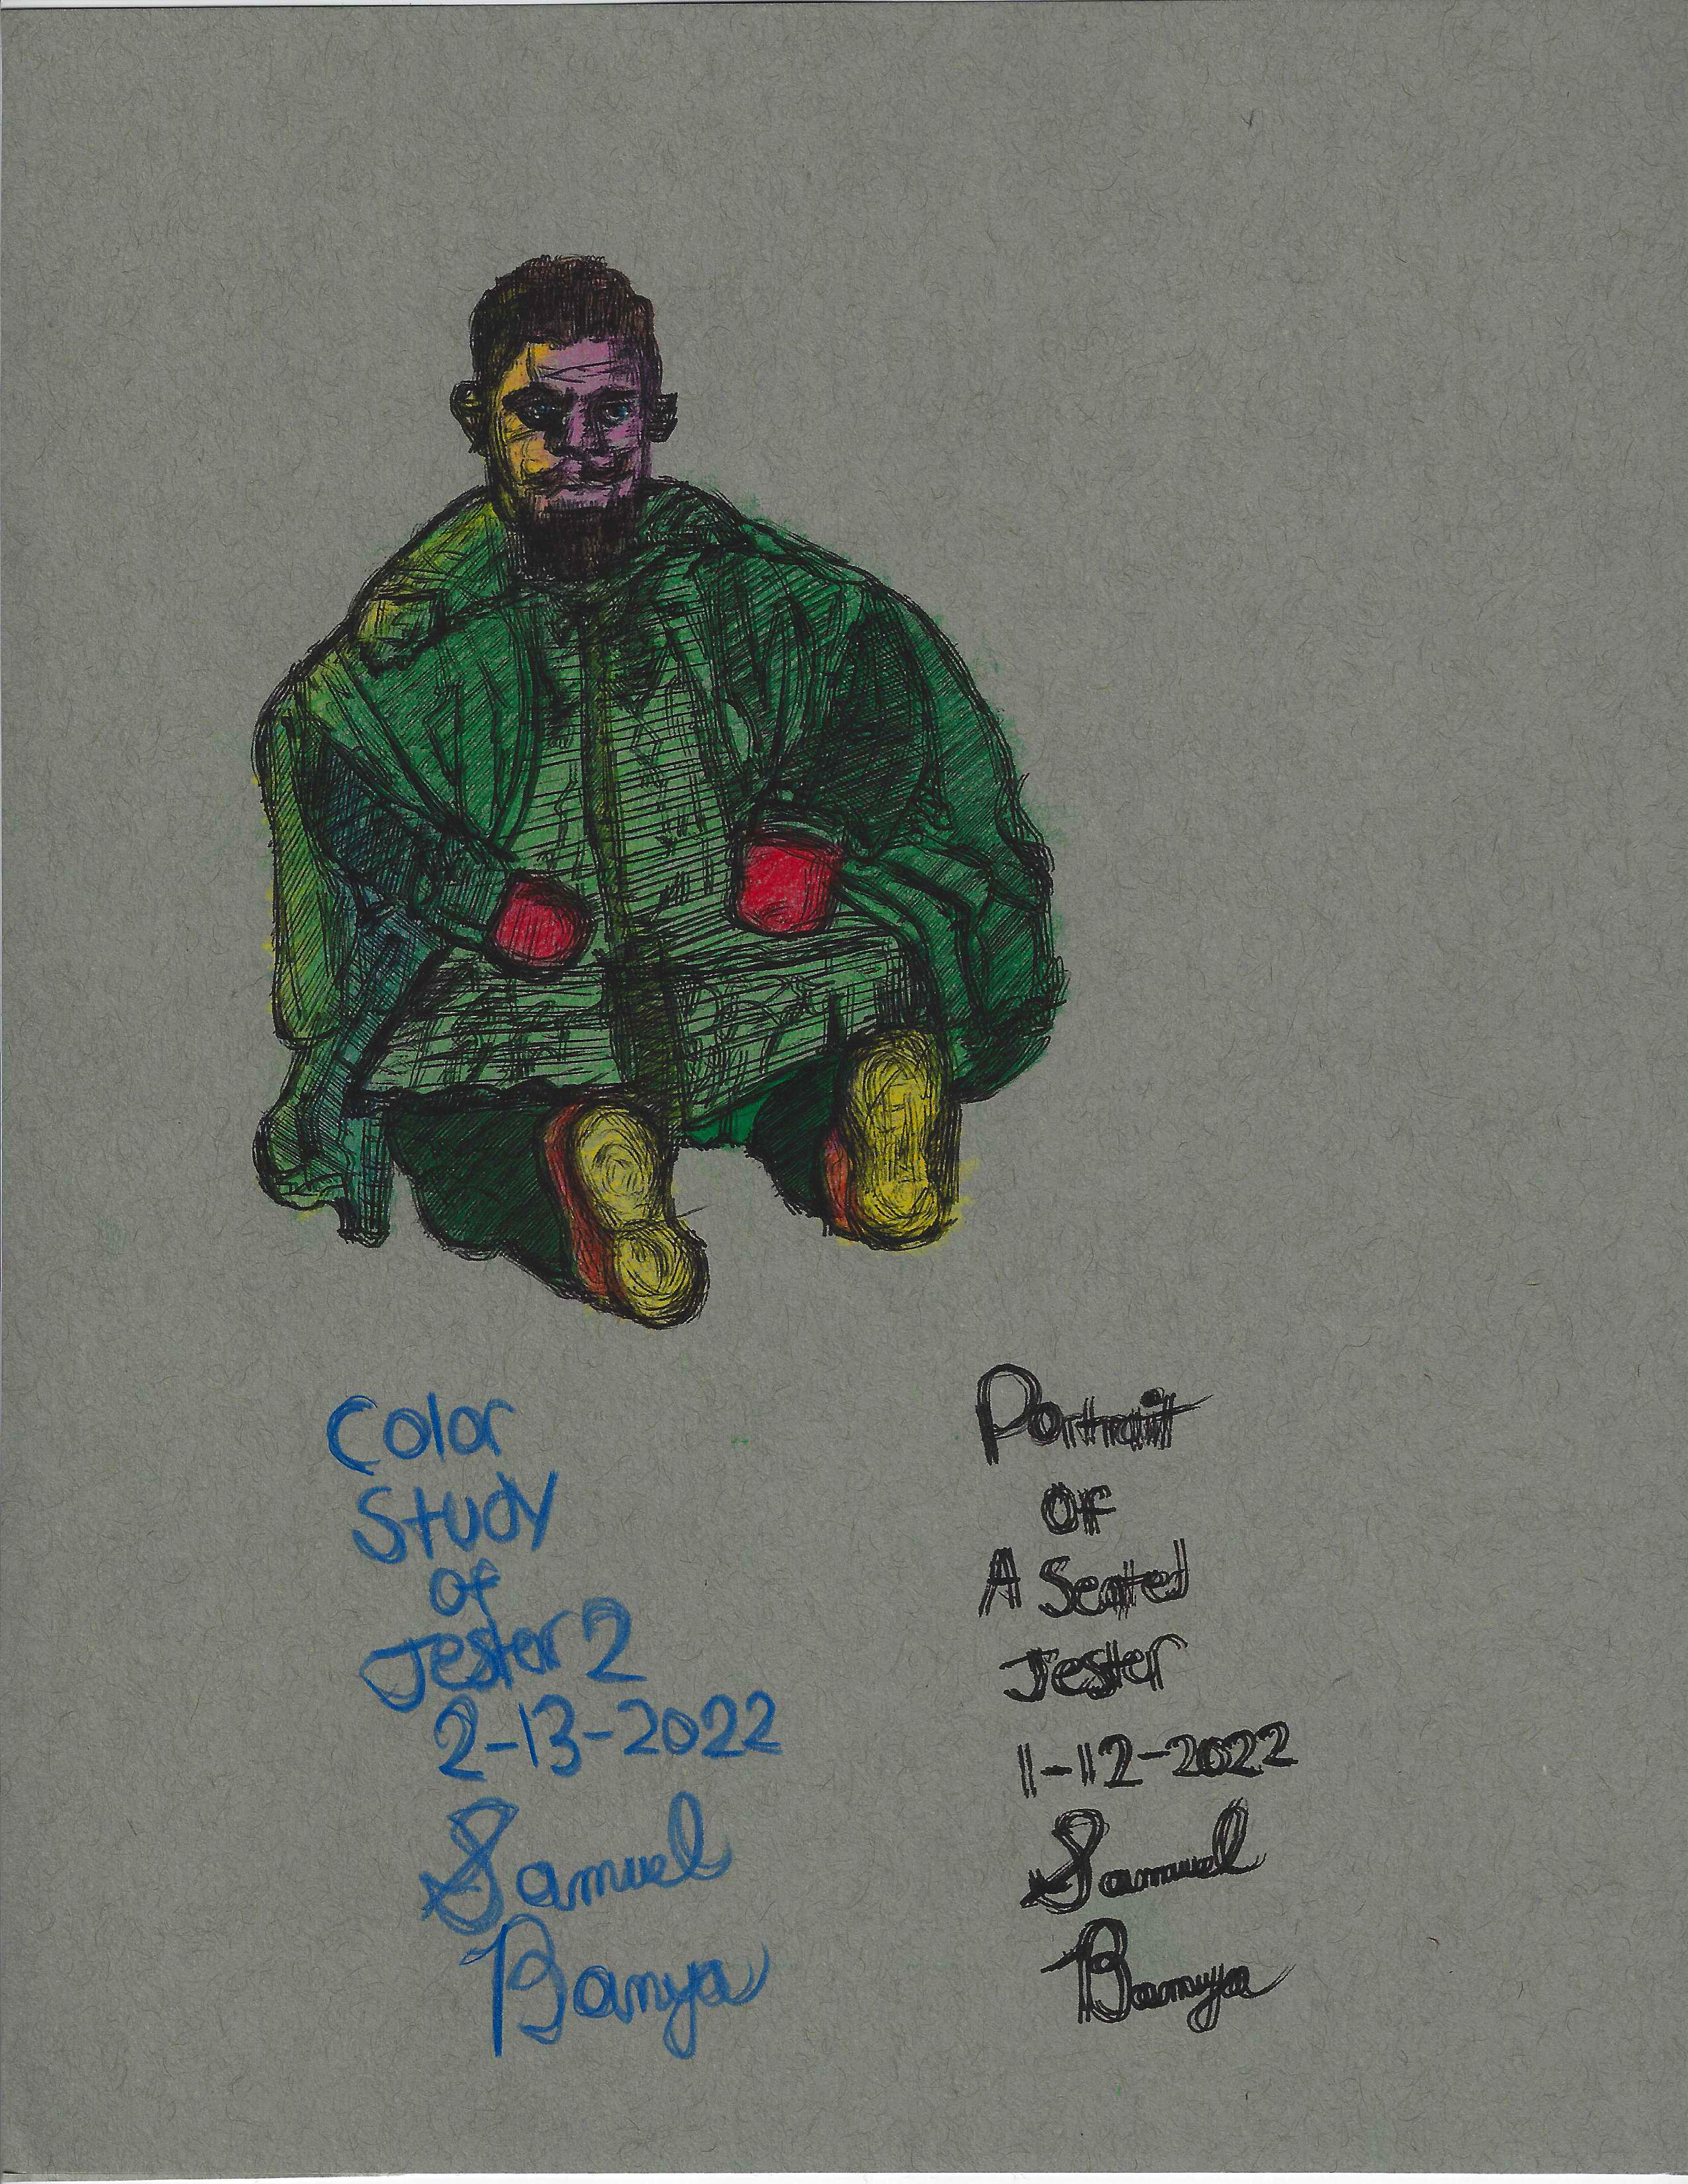 Color
Study
of
Jester 2
2-13-2022
Samuel
Banya
Portrait
Of
A Seated
Jester
1-12-2022
Samuel
Banya